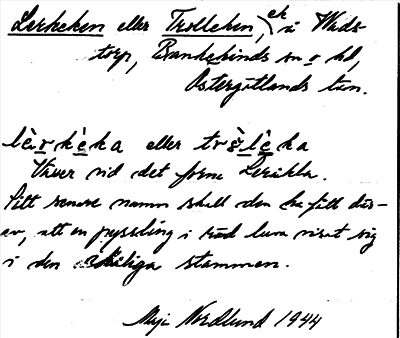 Lerkeken eller Trolleken, ek i Wads-
torp, Bankekinds sn o hd,
Östergötlands län.
lè̀rkèka eller tròlèka
Växer vid det forna Leräkla.
Sitt senare namn skall den ha fått där-
av, att en pyssling i röd luva visat sig
i den ihåliga stammen.
Maja Nordlund 1944